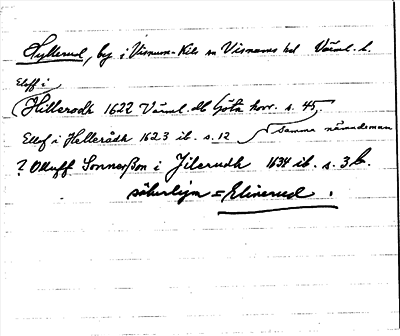 Hyllerud, by i Visnum-Kils sn Visnums hd Värml. l.
Elof i
Hillerodh 1622 Värml. db Göta hovr. s. 45.
Ellof i Hellerödh 1623 ib. s. 12 samma nämndeman
? Olluff Sonnesson i Jilerudh 1634 ib. s. 3 b.
säkerligen = Elinerud.